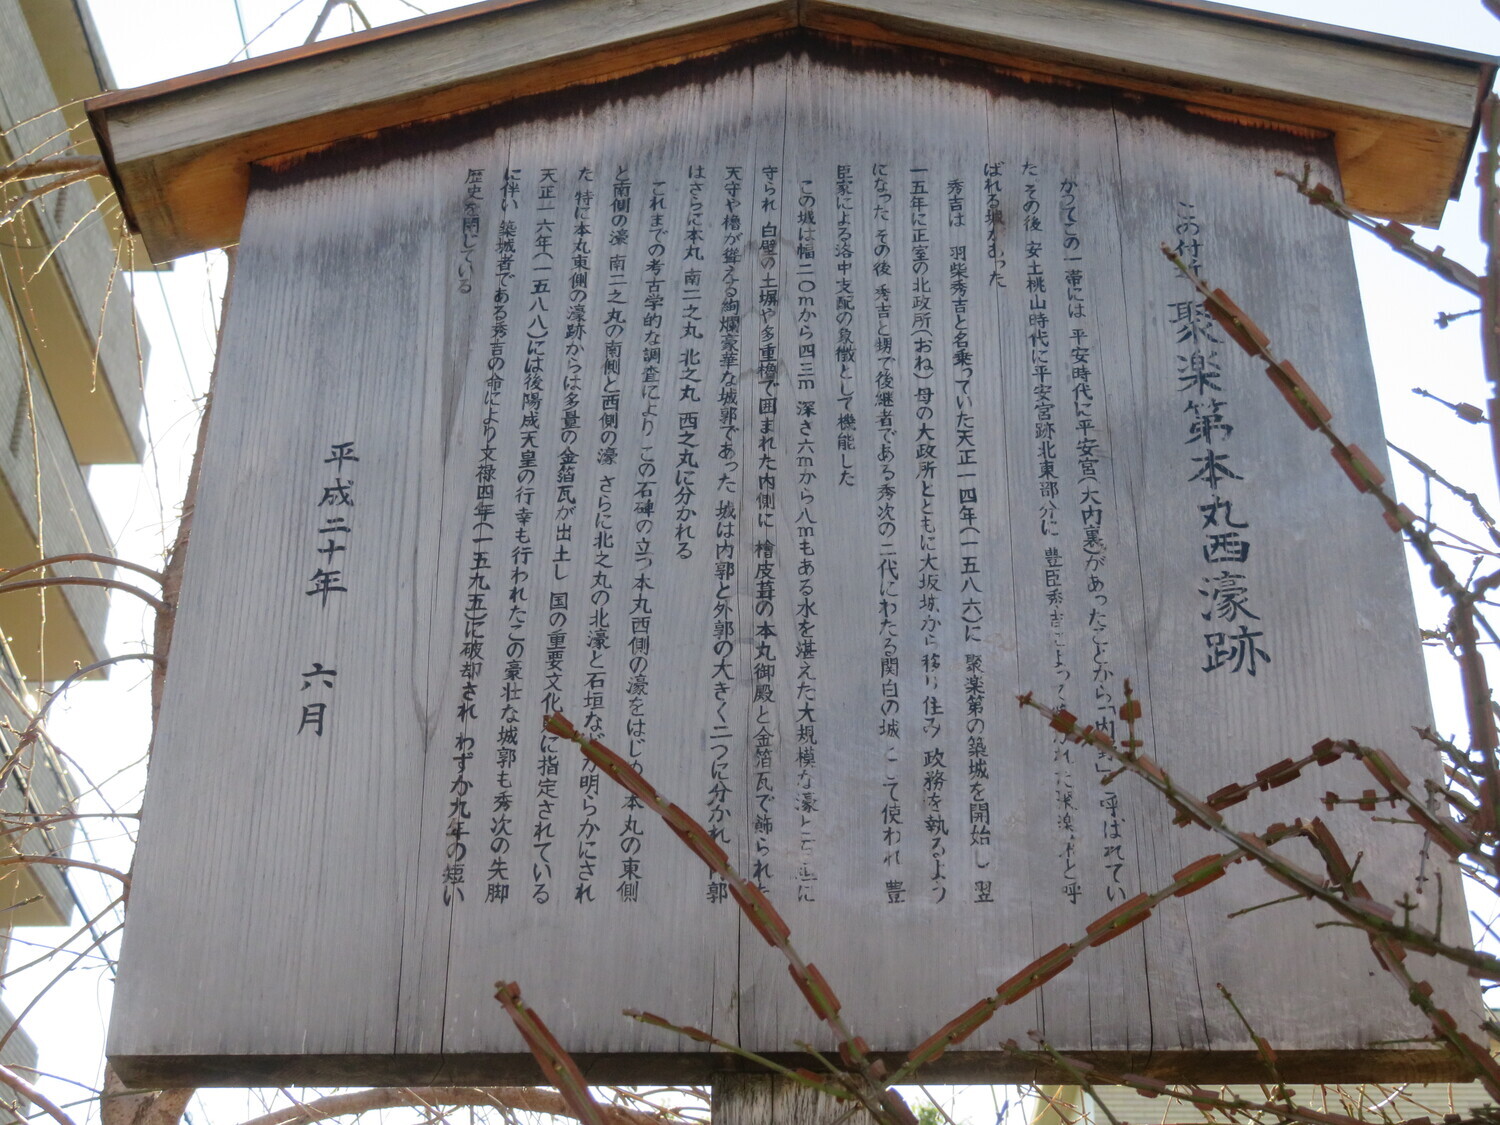 この付近 聚楽第本丸西濠跡
かつてこの一帯には 平安時代に平安宮(大内裏)があったことから「内野」 呼ばれてい
た その後 安土桃山時代に平安宮跡北東部分に 豊臣秀吉によって築かれた聚楽第と呼
ばれる城があった
秀吉は 羽柴秀吉と名乗っていた天正一四年(一五八六)に 聚楽第の築城を開始し 翌
一五年に正室の北政所(おね)母の大政所とともに大坂城から移り住み 政務を執るよう
になった その後 秀吉と甥で後継者である秀次の二代にわたる関白の城 して使われ 豊
臣家による洛中支配の象徴として機能した
この城は幅二〇mから四三m 深さ六mから八mもある水を堪えた大規模な濠と石垣に
守られ 白壁の土塀や多重櫓で囲まれた内側に 檜皮葺の本丸御殿と金箔瓦で飾られた
天守や櫓が聳える絢爛豪華な城郭であった 城は内郭と外郭の大きく二つに分かれ 内郭
はさらに本丸 南二之丸 北之丸 西之丸に分かれる
これまでの考古学的な調査により この石碑の立つ本丸西側の濠をはじめ 本丸の東側
と南側の濠 南二之丸の南側と西側の濠 さらに北之丸の北濠と石垣などが明らかにされ
た 特に本丸東側の濠跡からは多量の金箔瓦が出土し 国の重要文化財に指定されている
天正一六年(一五八八)には後陽成天皇の行幸も行われたこの豪壮な城郭も 秀次の失脚
に伴い 築城者である秀吉の命により文禄四年(一五九五)に破却され わずか九年の短い
歴史を閉じている
平成二十年 六月